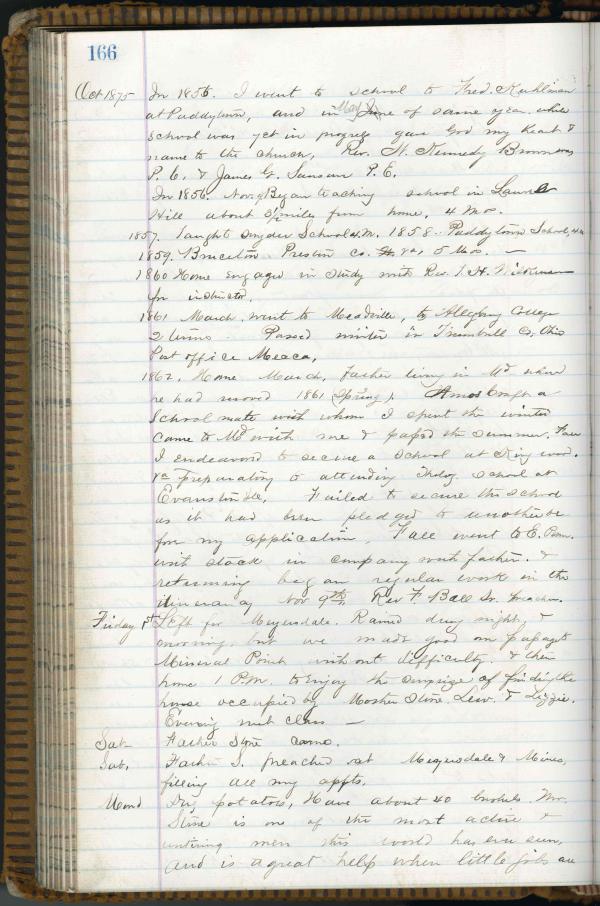 166
Oct 1875 In 1856. I went to school to Fred. Kuhlman
at Paddytown, and in May June of same year while
school was yet in progress gave God my heart &
name to the church, Rev. H. Kennedy Brown was
P. C. & James G. Sansom P. E.
In 1856. Nov. Began teaching school in Laurel
Hill about miles from home, 4 Mos.
1857. Taught Snyder School 4 M. 1858. Paddytown School, 4 m
1859. Bruceton Preston Co. Va, 5 Mos. —
1860 Home engaged in study with Rev. J. H.
for instructor,
1861 March, went to Meadville, to Allegheny College
2 terms. Passed winter in Trumbull Co. Ohio
Post office Meaca,
1862. Home March, Father living in Md where
he had moved 1861 (Spring). Amos
School mate with whom I spent the winter
came to Md with me & papsd the summer. Fall
I endeavord to secure a School at Kingwood.
Va preparatory to attending Theolog. School at
Evanston Ill, Failed to secure the school
as it had been pledged to another before
for my application, Fall went to E. Penn.
with stock in company with father. &
returning began regular work in the
itinerancy Nov 9th, Rev F. Ball Sr. Preacher.
Friday 1st Left for Meyersdale. Rained during night, &
morning, but we made good on papage to
Mineral Point without difficulty. & then
home 1 P.M. to enjoy the surprize of finding the
house occupied by Mother Stone, Lew. & Lizzie.
Evening met class —
Sat- Father Stone came.
Sab, Father S. preached at Meyersdale & Mines,
filling all my appts.
Mond Dug potatoes, Have about 40 bushels. Mr.
Stone is one of the most active &
untiring men this world has ever seen,
and is a great help when little jobs are